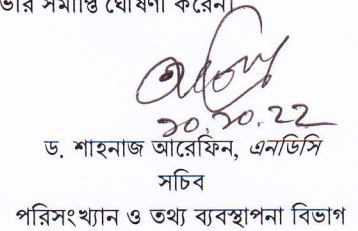 ভার সমাপ্তি ঘোষণা করেন।
২০.১০.২২
ড. শাহনাজ আরেফিন, এনডিসি
সচিব
পরিসংখ্যান ও তথ্য ব্যবস্থাপনা বিভাগ